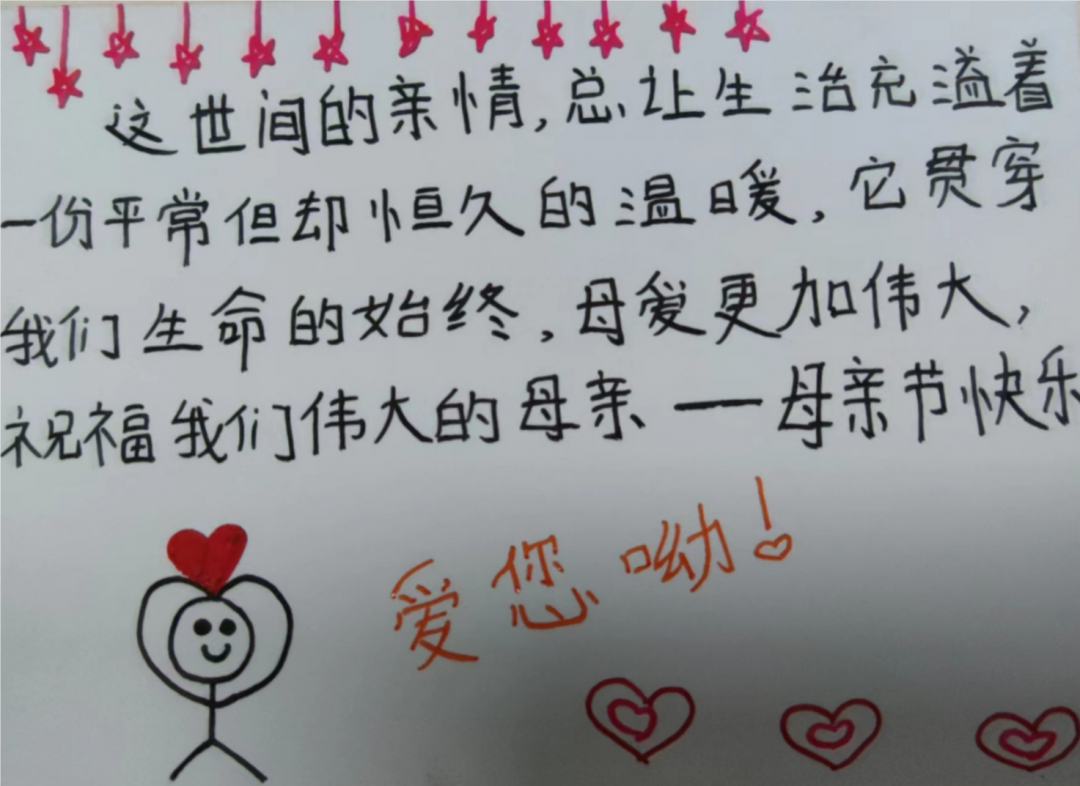 这世间的亲情,总让生活充溢着
一份平常但却恒久的温暖,它贯穿
我们生命的始终,母爱更加伟大,
祝福我们伟大的母亲——母亲节快乐
爱您呦!